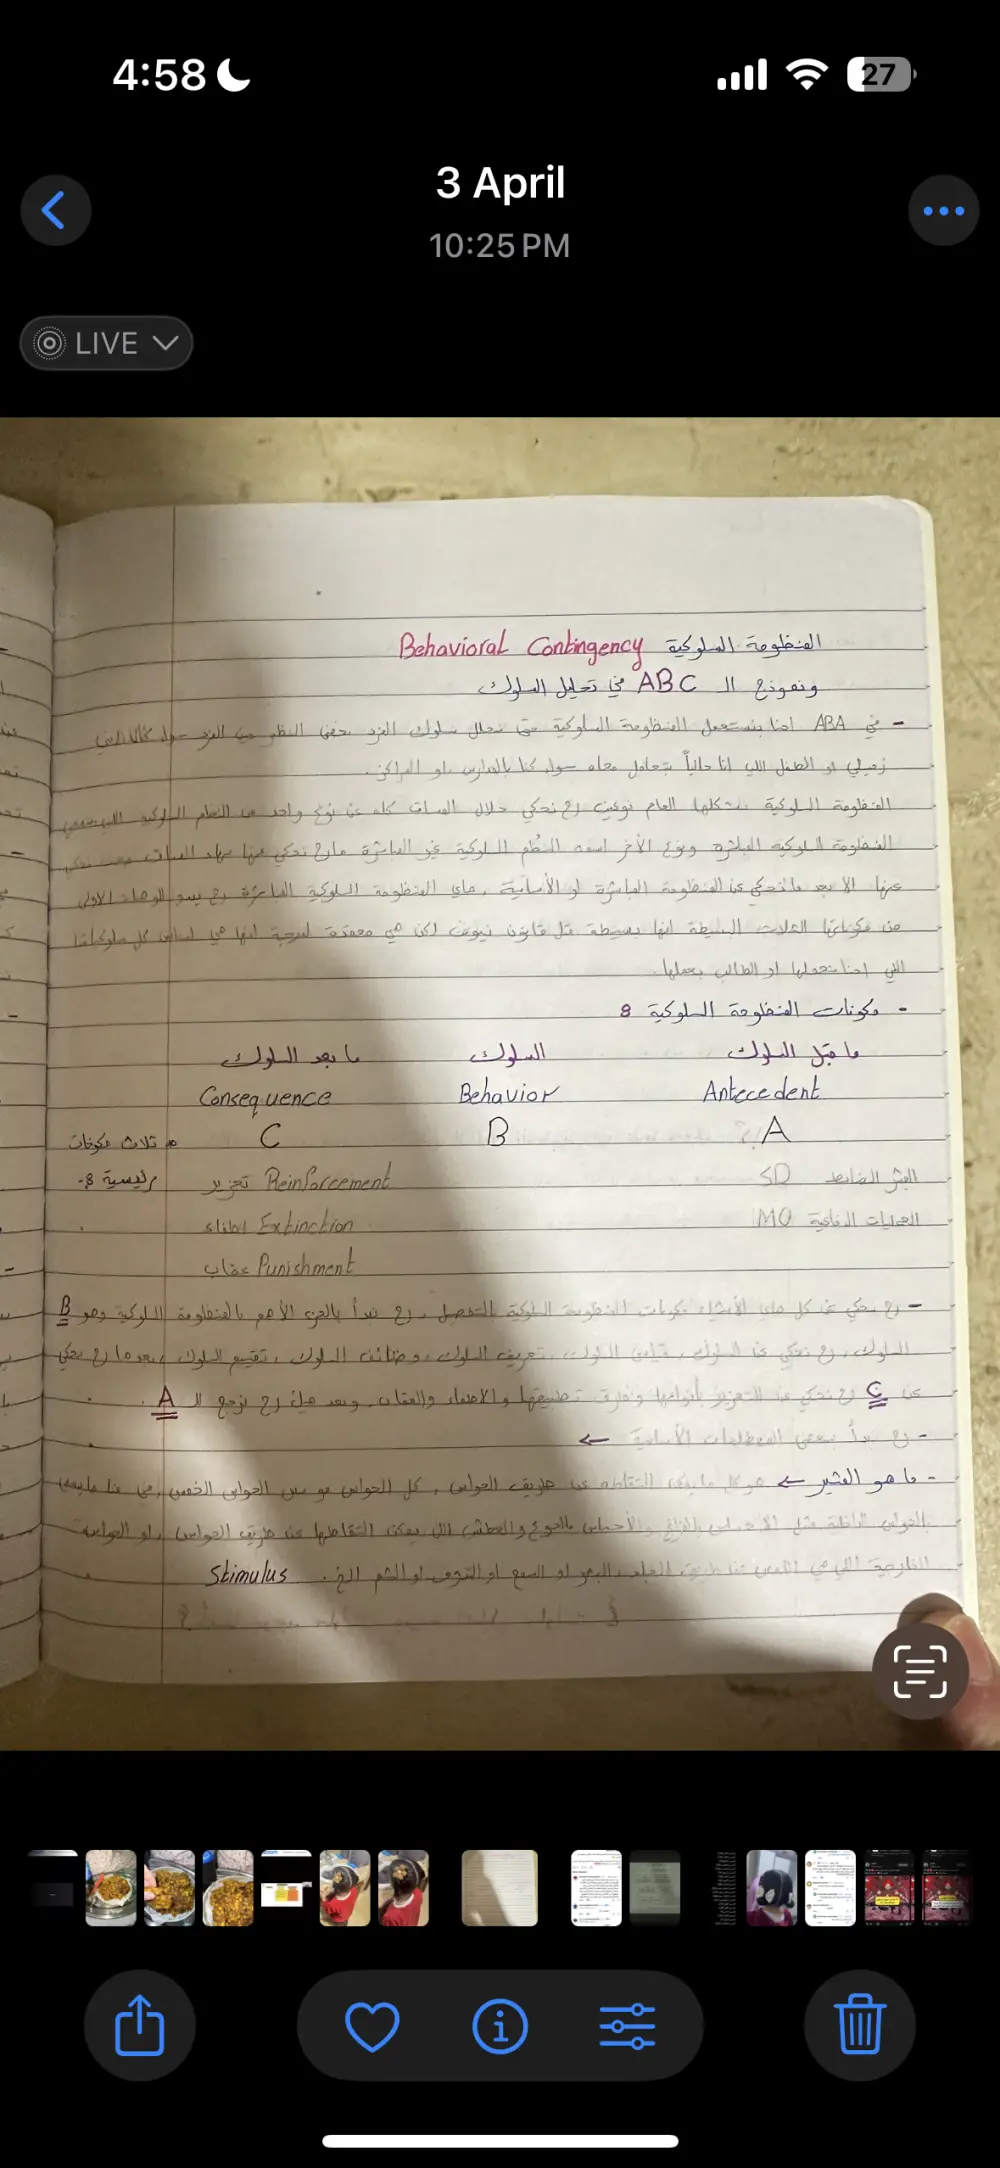 4:58
27
3 April
10:25 PM
LIVE
المنظومة السلوكية Behavioral Contingency
ونموذج الـ ABC في تحليل السلوك
- في ABA احنا بنستعمل المنظومة السلوكية حتى نحلل سلوك الفرد بغض النظر عن الفرد سواء كان
زميلي او الطفل اللي انا حالياً بتعامل معاه سواء كنا بالمدارس او المراكز.
المنظومة السلوكية بشكلها العام نوعين رح نحكي خلال المساق كله عن نوع واحد من النظم السلوكية اللي
المنظومة السلوكية المباشرة ونوع الآخر اسمه النُظم السلوكية غير المباشرة مارح نحكي عنها بهاد المساق
عنها الا بعد ما نحكي عن المنظومة المباشرة او الأساسية، هاي المنظومة السلوكية المباشرة رح يبدو الوهلة الاولى
من مكوناتها الثلاث البسيطة انها بسيطة مثل قانون نيوتن لكن هي معقدة لدرجة انها هي اساس كل سلوكياتنا
اللي احنا بنعملها او الطالب بعملها.
- مكونات المنظومة السلوكية 8
ما قبل السلوك السلوك ما بعد السلوك
Antecedent Behavior Consequence
A B C ثلاث مكونات
المثير الضابط SD تعزيز Reinforcement رئيسية 8-
العمليات الدفاعية MO اطفاء Extinction
عقاب Punishment
- رح نحكي عن كل هاي مكونات المنظومة السلوكية بالتفصيل، رح نبدأ بالجزء الأهم بالمنظومة السلوكية وهو B
السلوك، رح نحكي عن السلوك، قياس السلوك، تعريف السلوك، وظائف السلوك، تقييم السلوك، بعدها رح نحكي
عن C رح نحكي عن التعزيز بأنواعها وطرق تطبيقها والاطفاء والعقاب، وبعد هيك رح نرجع الـ A.
- رح نبدأ ببعض المصطلحات الأساسية ←
- ما هو المثير ← هو كل ما يمكن التقاطه عن طريق الحواس، كل الحواس هو مش الحواس الخمس
بالحواس الداخلية مثل الاحساس بالفراغ والأحساس بالجوع والعطش اللي يمكن التقاطها عن طريق الحواس، او الحواس
الخارجية اللي هي اللمس عن طريق الجلد، البصر او السمع او التذوق او الشم الخ. Stimulus